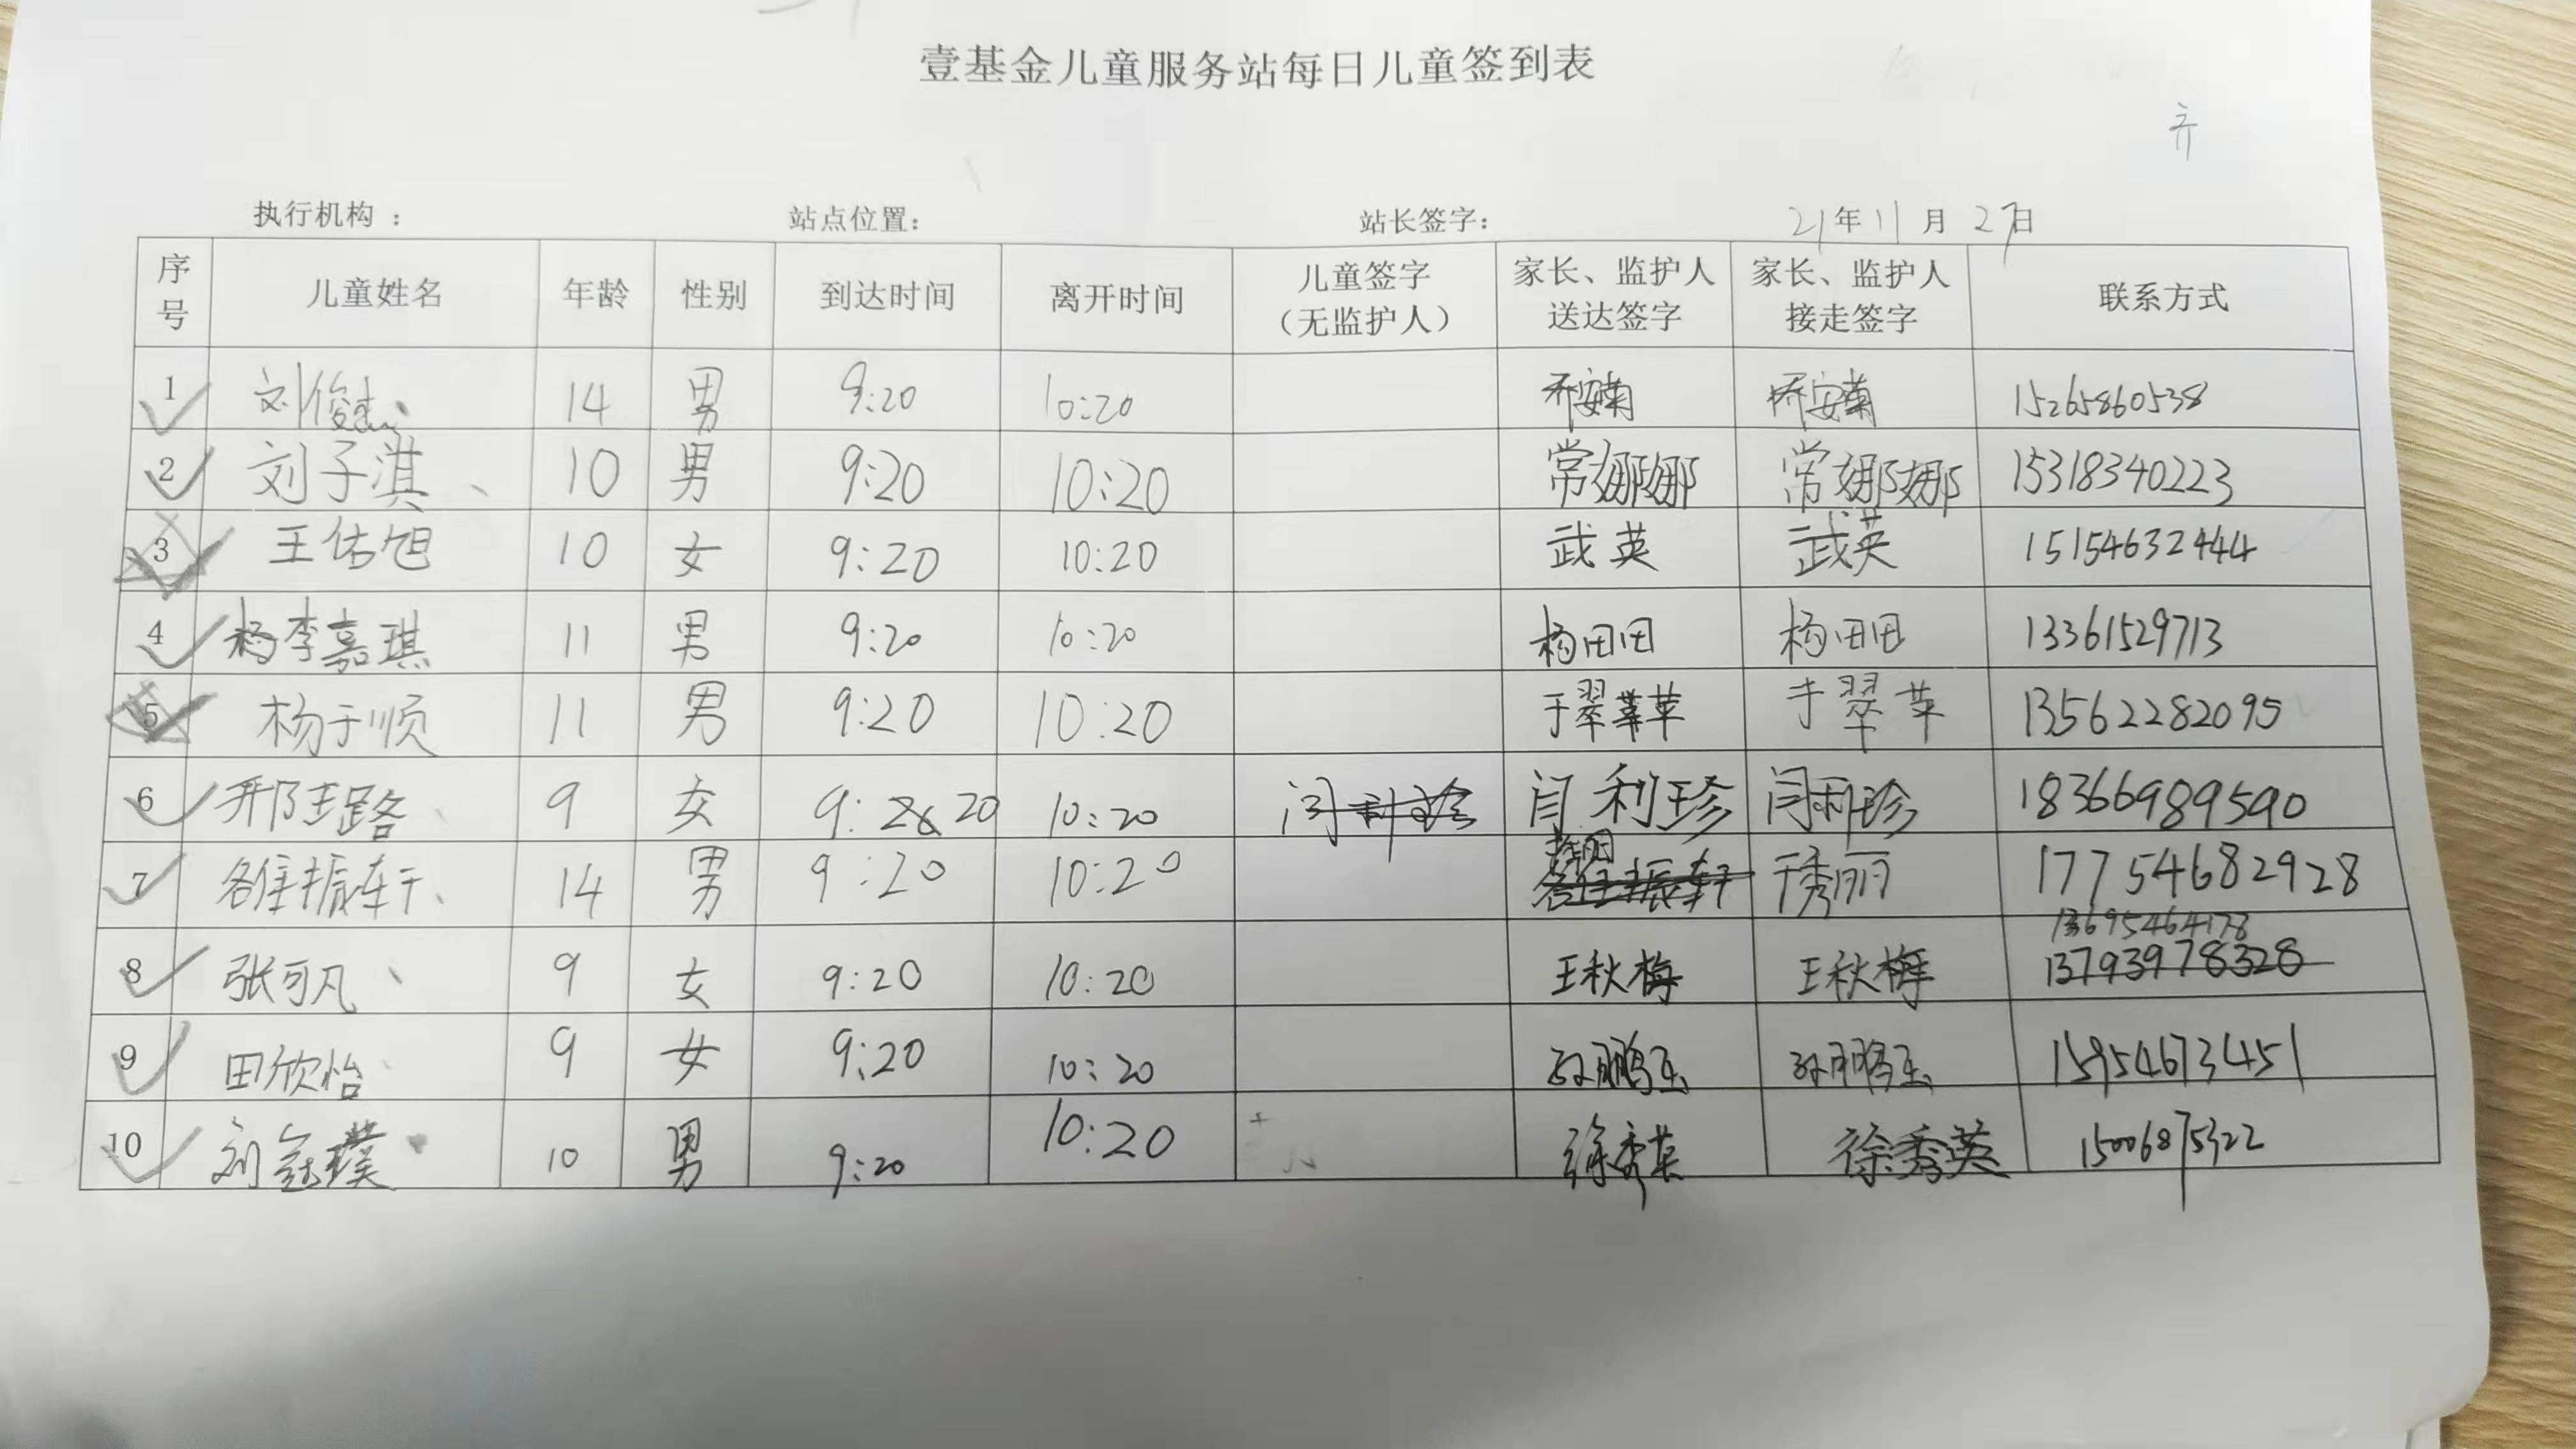 壹基金儿童服务站每日儿童签到表
齐
执行机构： 站点位置： 站长签字： 21年11月27日
序号 儿童姓名 年龄 性别 到达时间 离开时间 儿童签字（无监护人） 家长、监护人送达签字 家长、监护人接走签字 联系方式
1 刘俊杰 14 男 9:20 10:20 乔安南 乔安南 15265860538
2 刘子淇 10 男 9:20 10:20 常娜娜 常娜娜 15318340223
3 王佑旭 10 女 9:20 10:20 武英 武英 15154632444
4 杨李嘉琪 11 男 9:20 10:20 杨田田 杨田田 13361529713
5 杨于顺 11 男 9:20 10:20 于翠苹 于翠苹 13562282095
6 邢钰路 9 女 9:20 10:20 闫利珍 闫利珍 18366989590
7 振轩 14 男 9:20 10:20 于秀丽 17754682928
13695464178
8 张可凡 9 女 9:20 10:20 王秋梅 王秋梅 13793978328
9 田欣怡 9 女 9:20 10:20 孙鹏玉 孙鹏玉 15954673451
10 刘 璞 10 男 9:20 10:20 徐秀英 徐秀英 15006875322